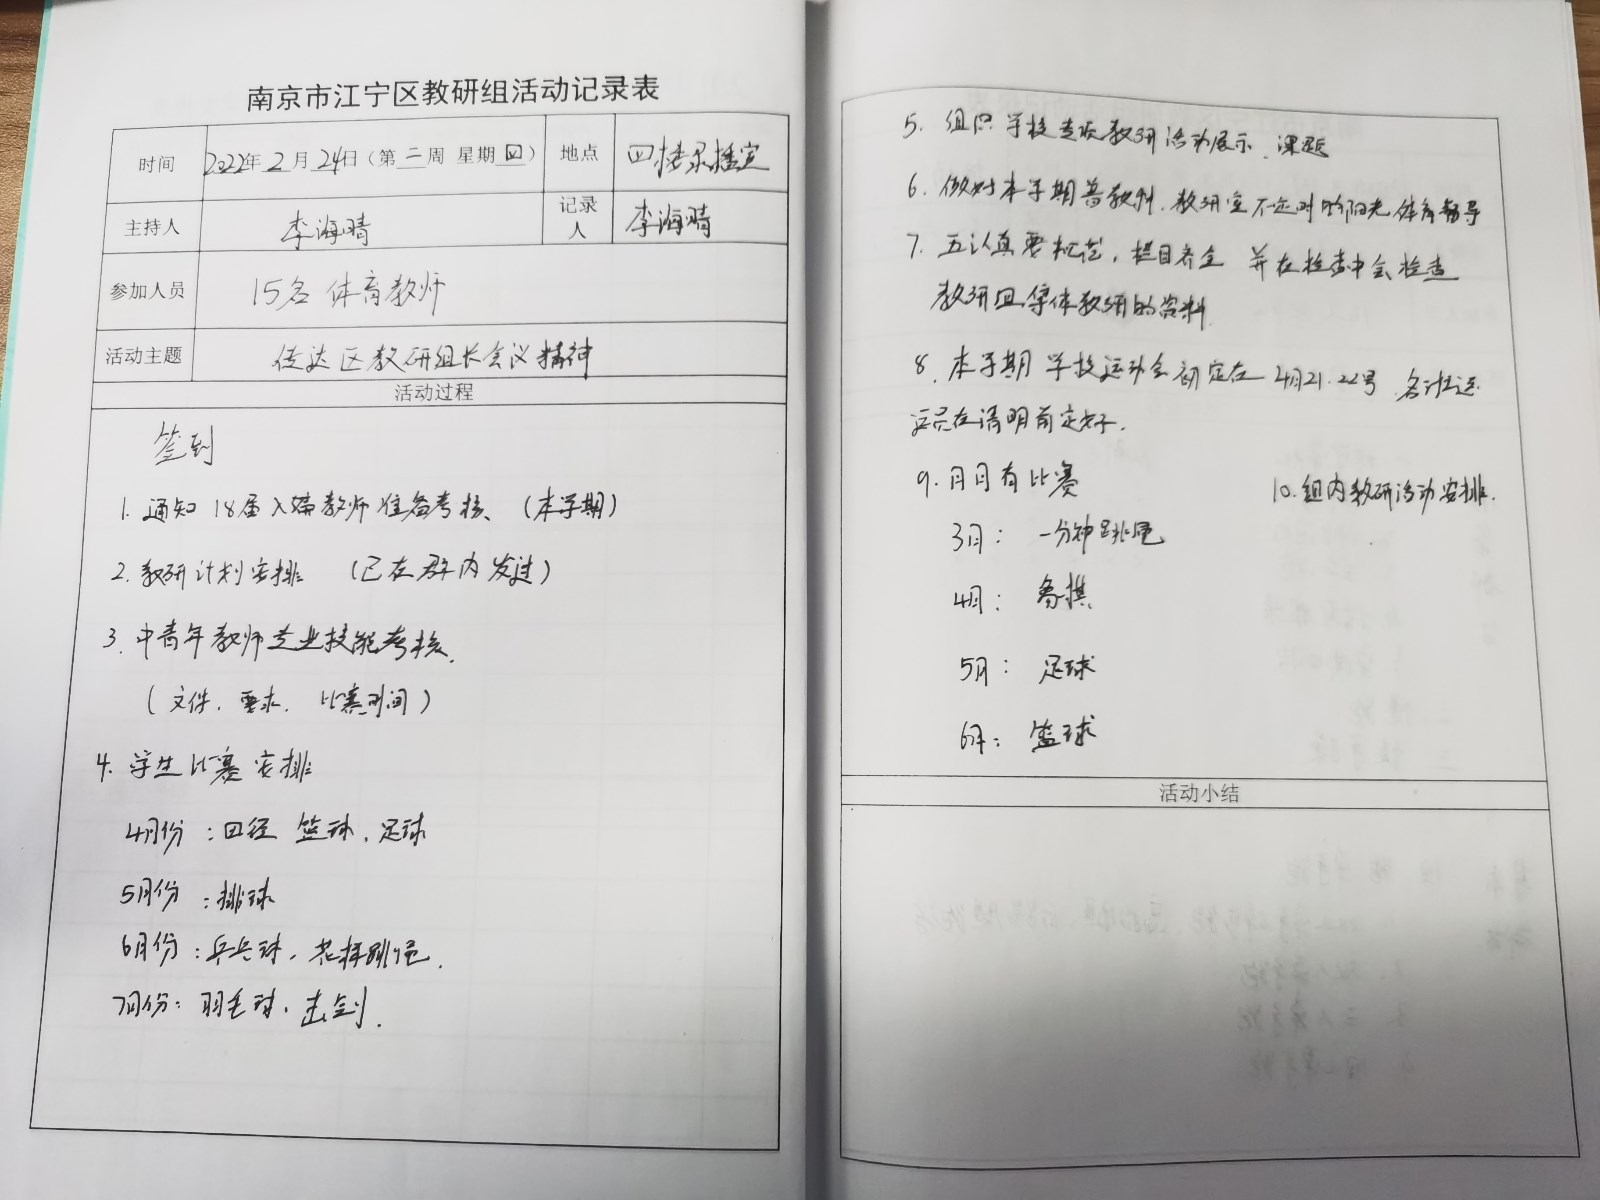 南京市江宁区教研组活动记录表
时间 2022年2月24日(第二周 星期四) 地点 四楼录播室
主持人 李海晴 记录人 李海晴
参加人员 15名体育教师
活动主题 传达区教研组长会议精神
活动过程
签到
1. 通知18届入编教师准备考核、(本学期)
2. 教研计划安排 (已在群内发过)
3. 中青年教师专业技能考核.
(文件. 要求. 比赛时间)
4. 学生比赛安排
4月份:田径 篮球、足球
5月份:排球
6月份:乒乓球、花样跳绳.
7月份:羽毛球、击剑.
5. 组织学校专项教研活动展示、课题
6. 做好本学期普教科、教研室不定时的阳光体育督导
7. 五认真要规范,栏目齐全 并在检查中会检查
教研组集体教研的资料
8. 本学期学校运动会初定在4月21.22号 各
员在清明前定好.
9. 月月有比赛
3月: 一分钟跳绳
4月: 象棋
5月: 足球
6月: 篮球
10. 组内教研活动安排.
活动小结